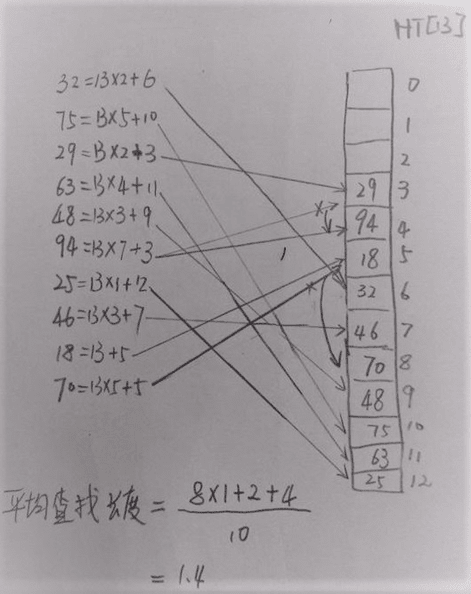 HT[13]
32=13×2+6
75=13×5+10
29=13×2+3
63=13×4+11
48=13×3+9
94=13×7+3
25=13×1+12
46=13×3+7
18=13+5
70=13×5+5
0
1
2
29 3
94 4
18 5
32 6
46 7
70 8
48 9
75 10
63 11
25 12
平均查找长度= 8×1+2+4
10
=1.4